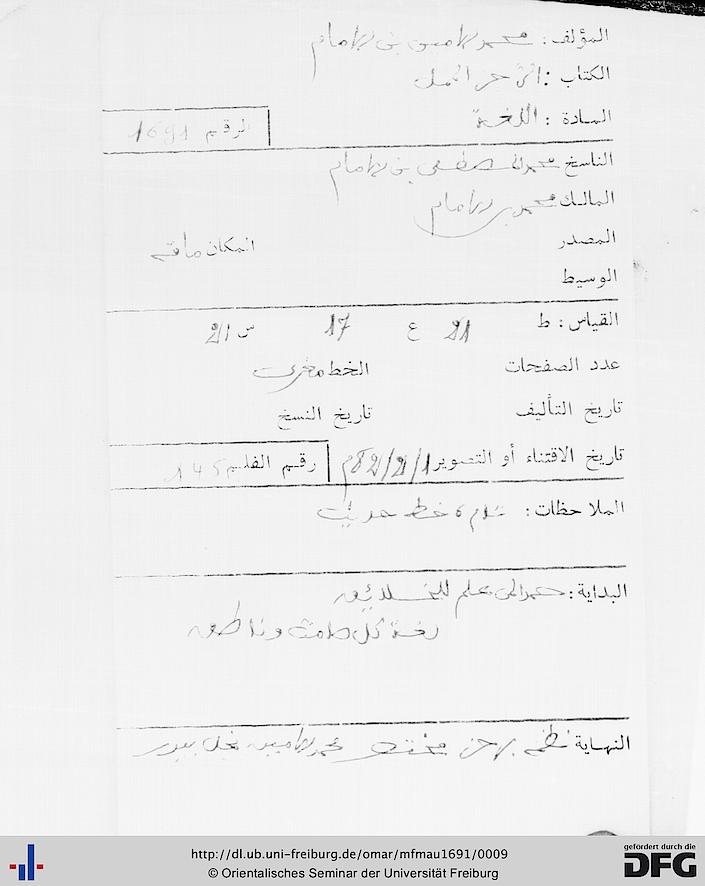 المؤلف: محمد الامين بن الامام
الكتاب:
المادة: اللغة
الرقم 1691
الناسخ محمد المصطفى بن الامام
المالك محمد بن الامام
المصدر المكان
الوسيط
القياس: ط 21 ع 17 س 21
عدد الصفحات الخط مغربي
تاريخ التأليف تاريخ النسخ
تاريخ الاقتناء أو التصوير رقم الفلم 145
الملاحظات: تام خط حديث
البداية: حمدا لمن علم للخلائق
لغة كل صامت وناطق
النهاية محمد الامين
http://dl.ub.uni-freiburg.de/omar/mfmau1691/0009
© Orientalisches Seminar der Universität Freiburg
gefördert durch die
DFG